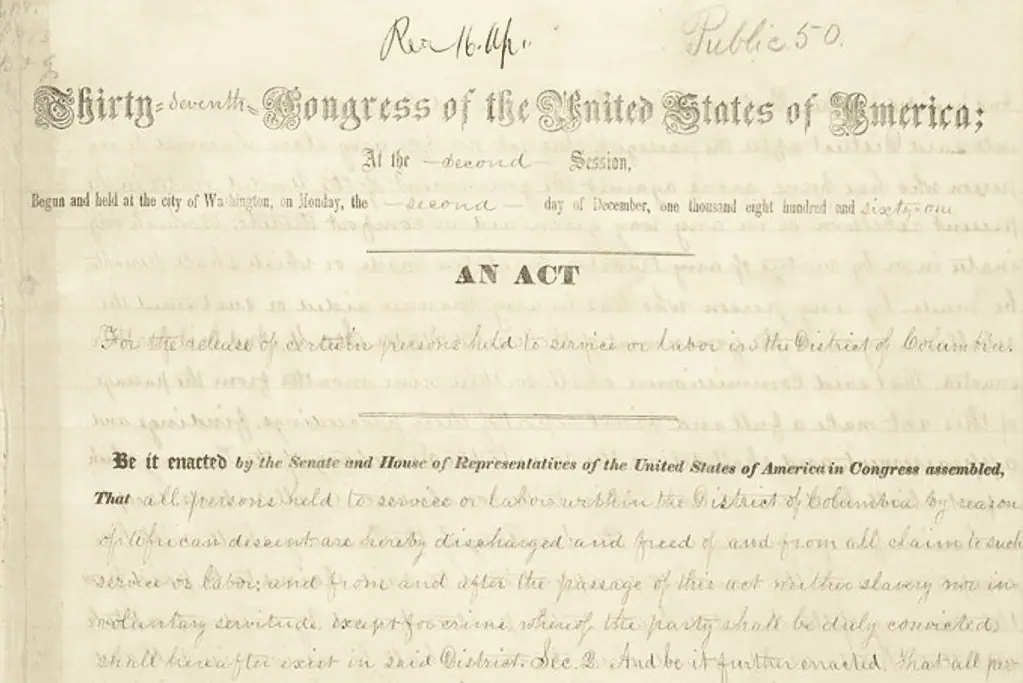 Rec 16. Ap.
Public 50.
Thirty-seventh-Congress of the United States of America;
At the -second- Session,
Begun and held at the city of Washington, on Monday, the -second- day of December, one thousand eight hundred and sixty-one
AN ACT
For the release of certain persons held to service or labor in the District of Columbia.
Be it enacted by the Senate and House of Representatives of the United States of America in Congress assembled,
That all persons held to service or labor within the District of Columbia by reason
of African descent are hereby discharged and freed of and from all claim to such
service or labor; and from and after the passage of this act neither slavery nor in-
voluntary servitude, except for crime, whereof the party shall be duly convicted,
shall hereafter exist in said District. Sec. 2. And be it further enacted, That all per-